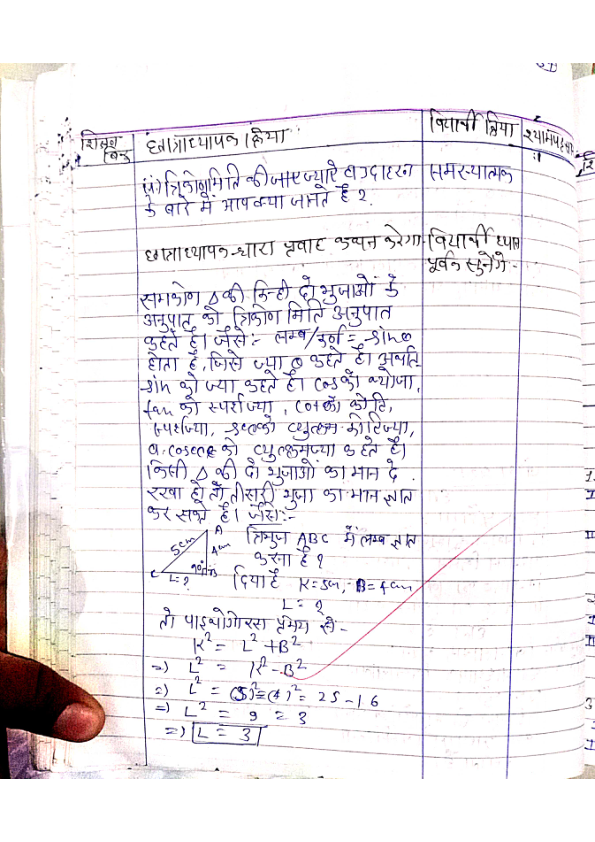 शिक्षण बिन्दु
छात्राध्यापक क्रिया
विद्यार्थी क्रिया
श्यामपट्ट
त्रिकोणमिति की उदाहरन
के बारे में आप क्या जानते है ?
समस्यात्मक
छात्राध्यापक द्वारा प्रवाह कथन करेगा-
विद्यार्थी ध्यान
पूर्वक सुनेंगे-
समकोण Δ की किन्ही दो भुजाओं के
अनुपात को त्रिकोण मिति अनुपात
कहते है। जैसे:- लम्ब/कर्ण = sinθ
होता है, जिसे ज्या θ कहते है। अर्थात
sin को ज्या कहते है। cos को कोज्या,
tan को स्पर्शज्या, cot को कोटि,
स्पर्शज्या, sec को व्युत्क्रम कोटिज्या,
व cosec को व्युत्क्रमज्या कहते है।
किसी Δ की दो भुजाओं का मान दे
रखा हो तो तीसरी भुजा का मान ज्ञात
कर सकते है। जैसे:-
A
5cm
4cm
90°
B
C
L=?
त्रिभुज ABC में लम्ब ज्ञात
करना है ?
दिया है K=5cm, B=4cm
L = ?
तो पाइथोगोरस प्रमेय से-
K² = L² + B²
=) L² = K² - B²
=) L² = (5)² = (4)² = 25 - 16
=) L² = 9 = 3
=) L = 3